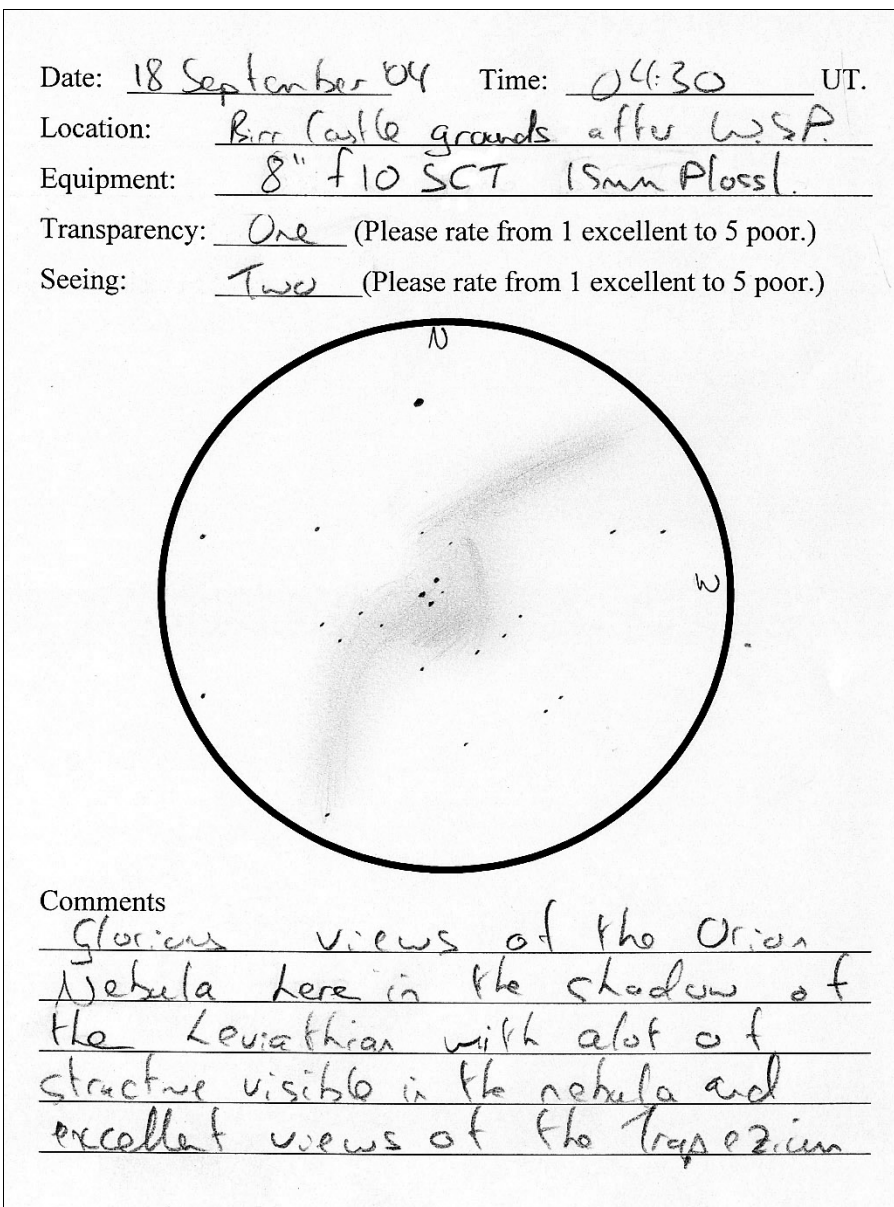 Date: 18 September '04 Time: 04:30 UT.
Location: Birr Castle grounds after W.S.P.
Equipment: 8" f10 SCT 15mm Plossl.
Transparency: One (Please rate from 1 excellent to 5 poor.)
Seeing: Two (Please rate from 1 excellent to 5 poor.)
N
W
Comments
Glorious views of the Orion
Nebula here in the shadow of
the Leviathian with alot of
structure visible in the nebula and
excellent views of the Trapezium